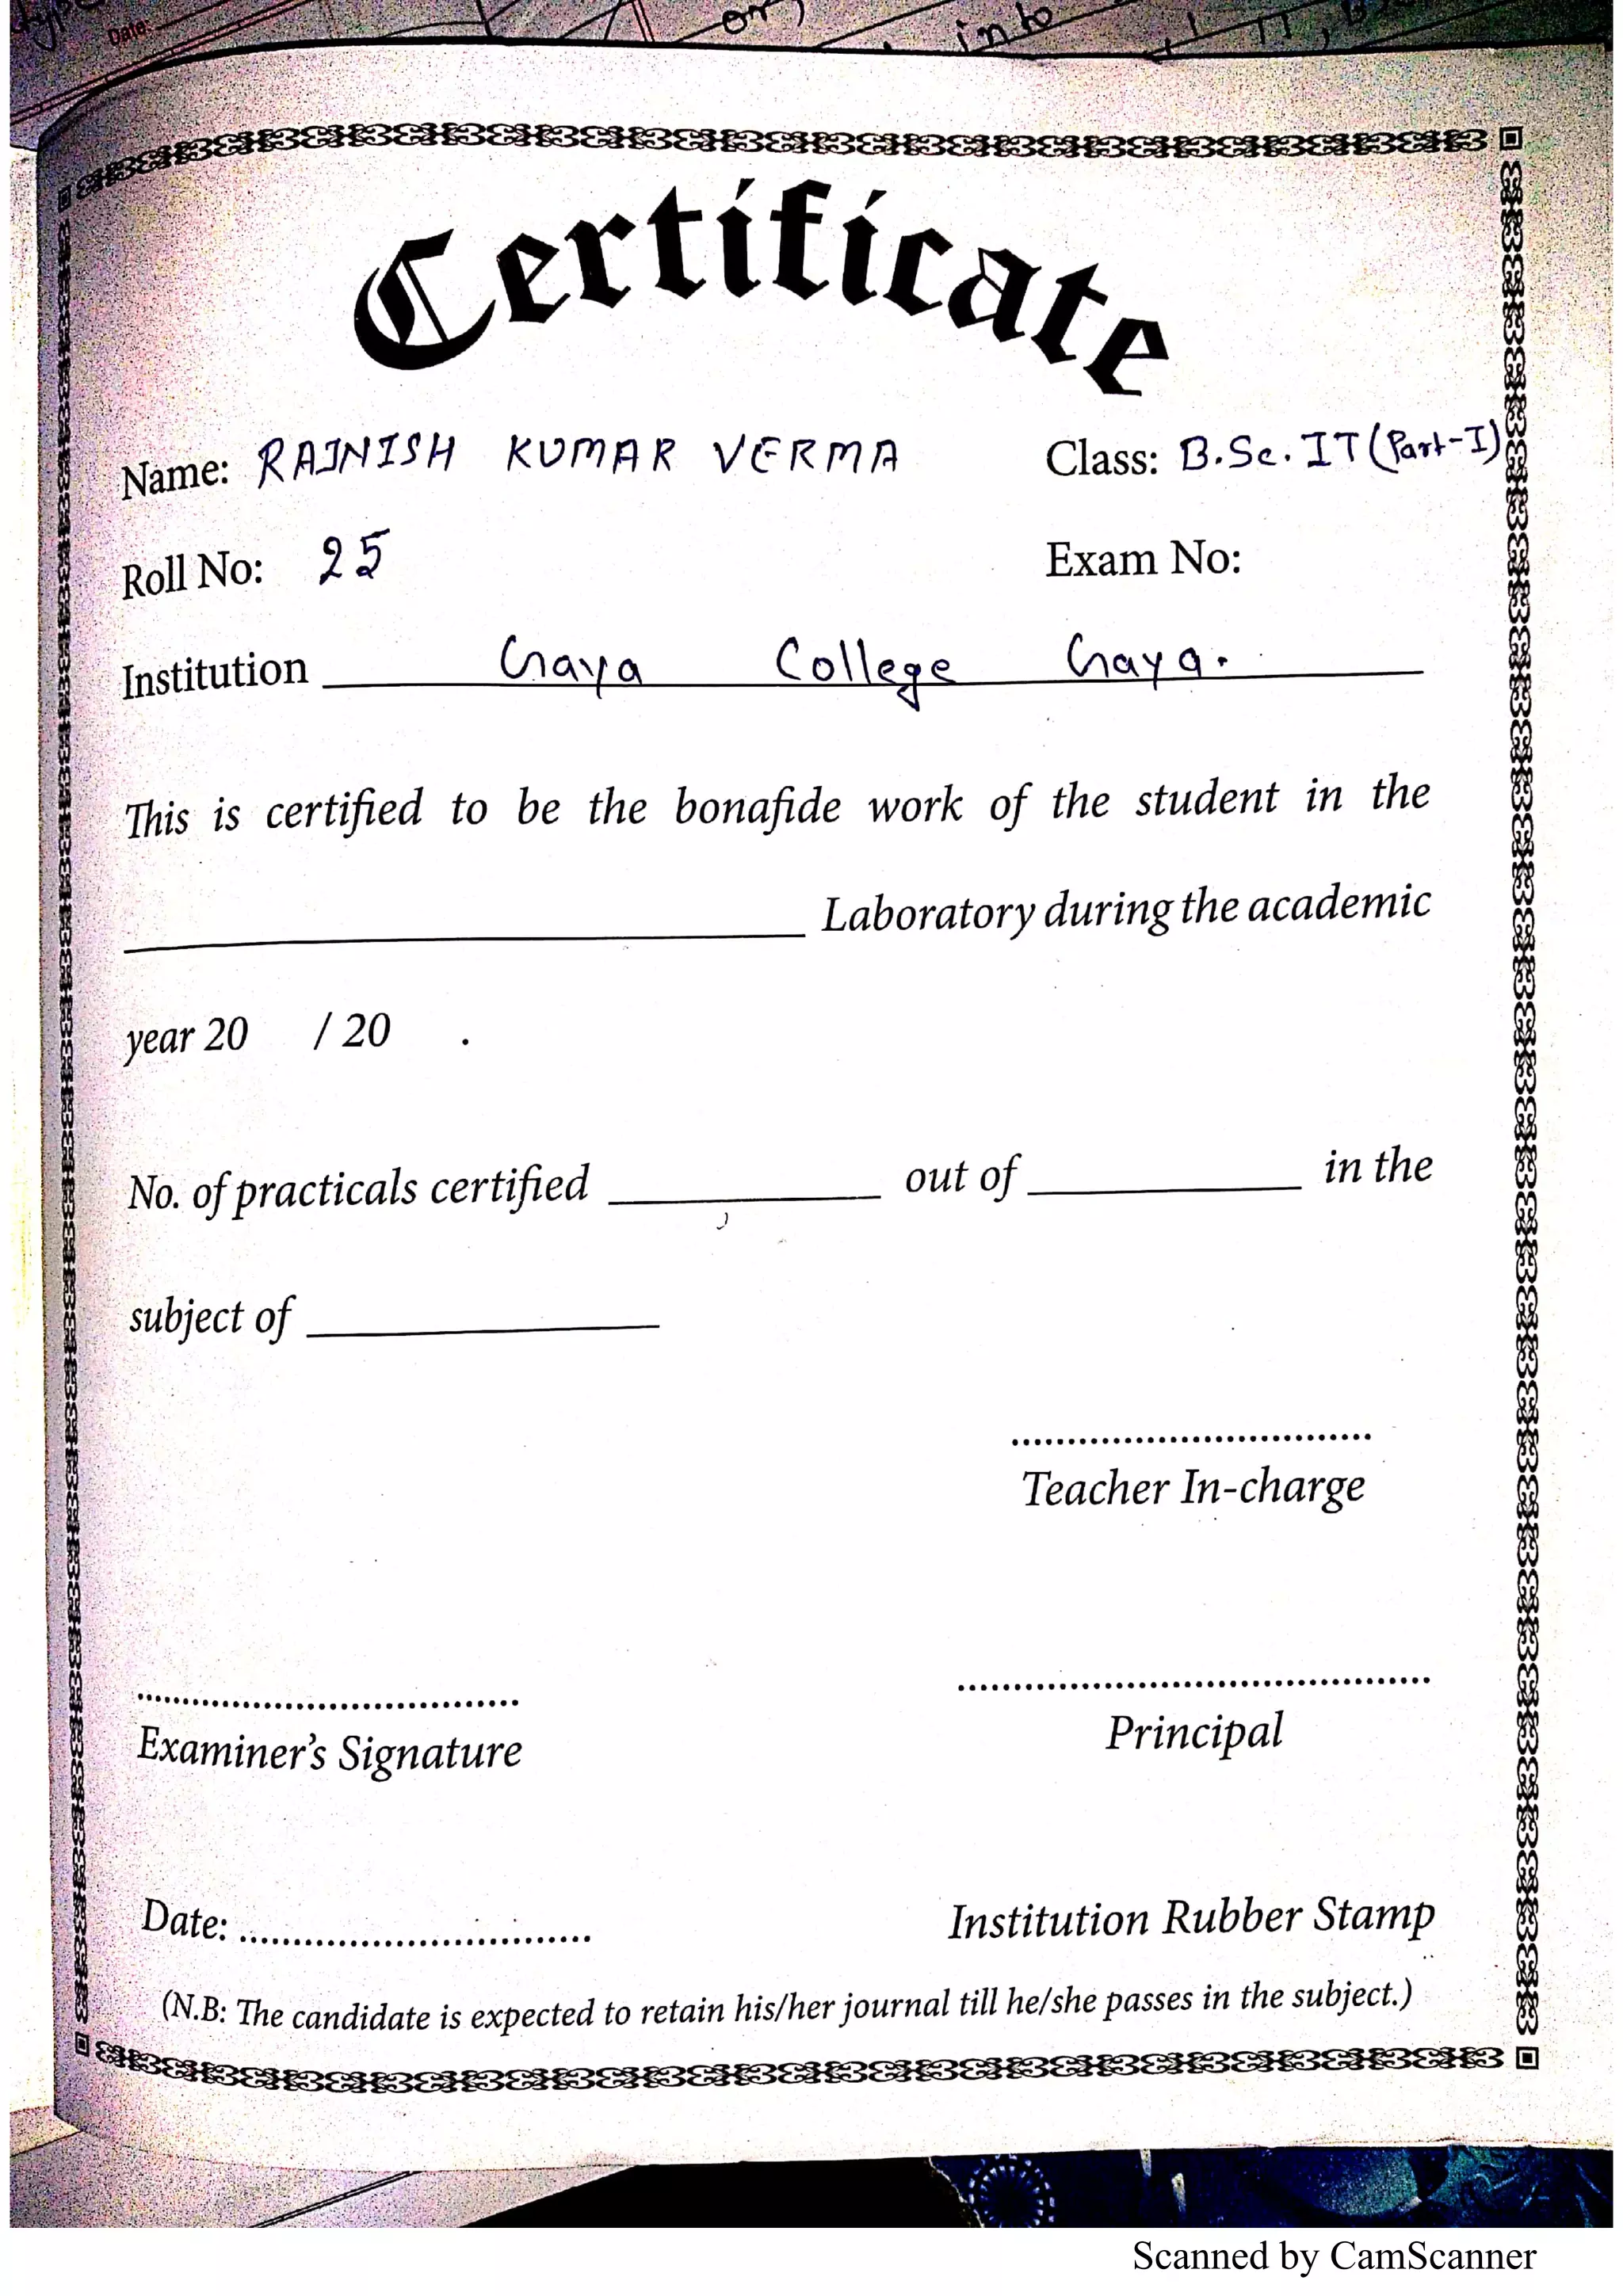 Date:
on,
into
Certificate
Name: RAJNISH KUMAR VERMA Class: B.Sc. IT (Part-I)
Roll No: 25 Exam No:
Institution Gaya College Gaya.
This is certified to be the bonafide work of the student in the
Laboratory during the academic
year 20 / 20 .
No. of practicals certified out of in the
subject of
Teacher In-charge
Examiner's Signature Principal
Date: Institution Rubber Stamp
(N.B: The candidate is expected to retain his/her journal till he/she passes in the subject.)
Scanned by CamScanner